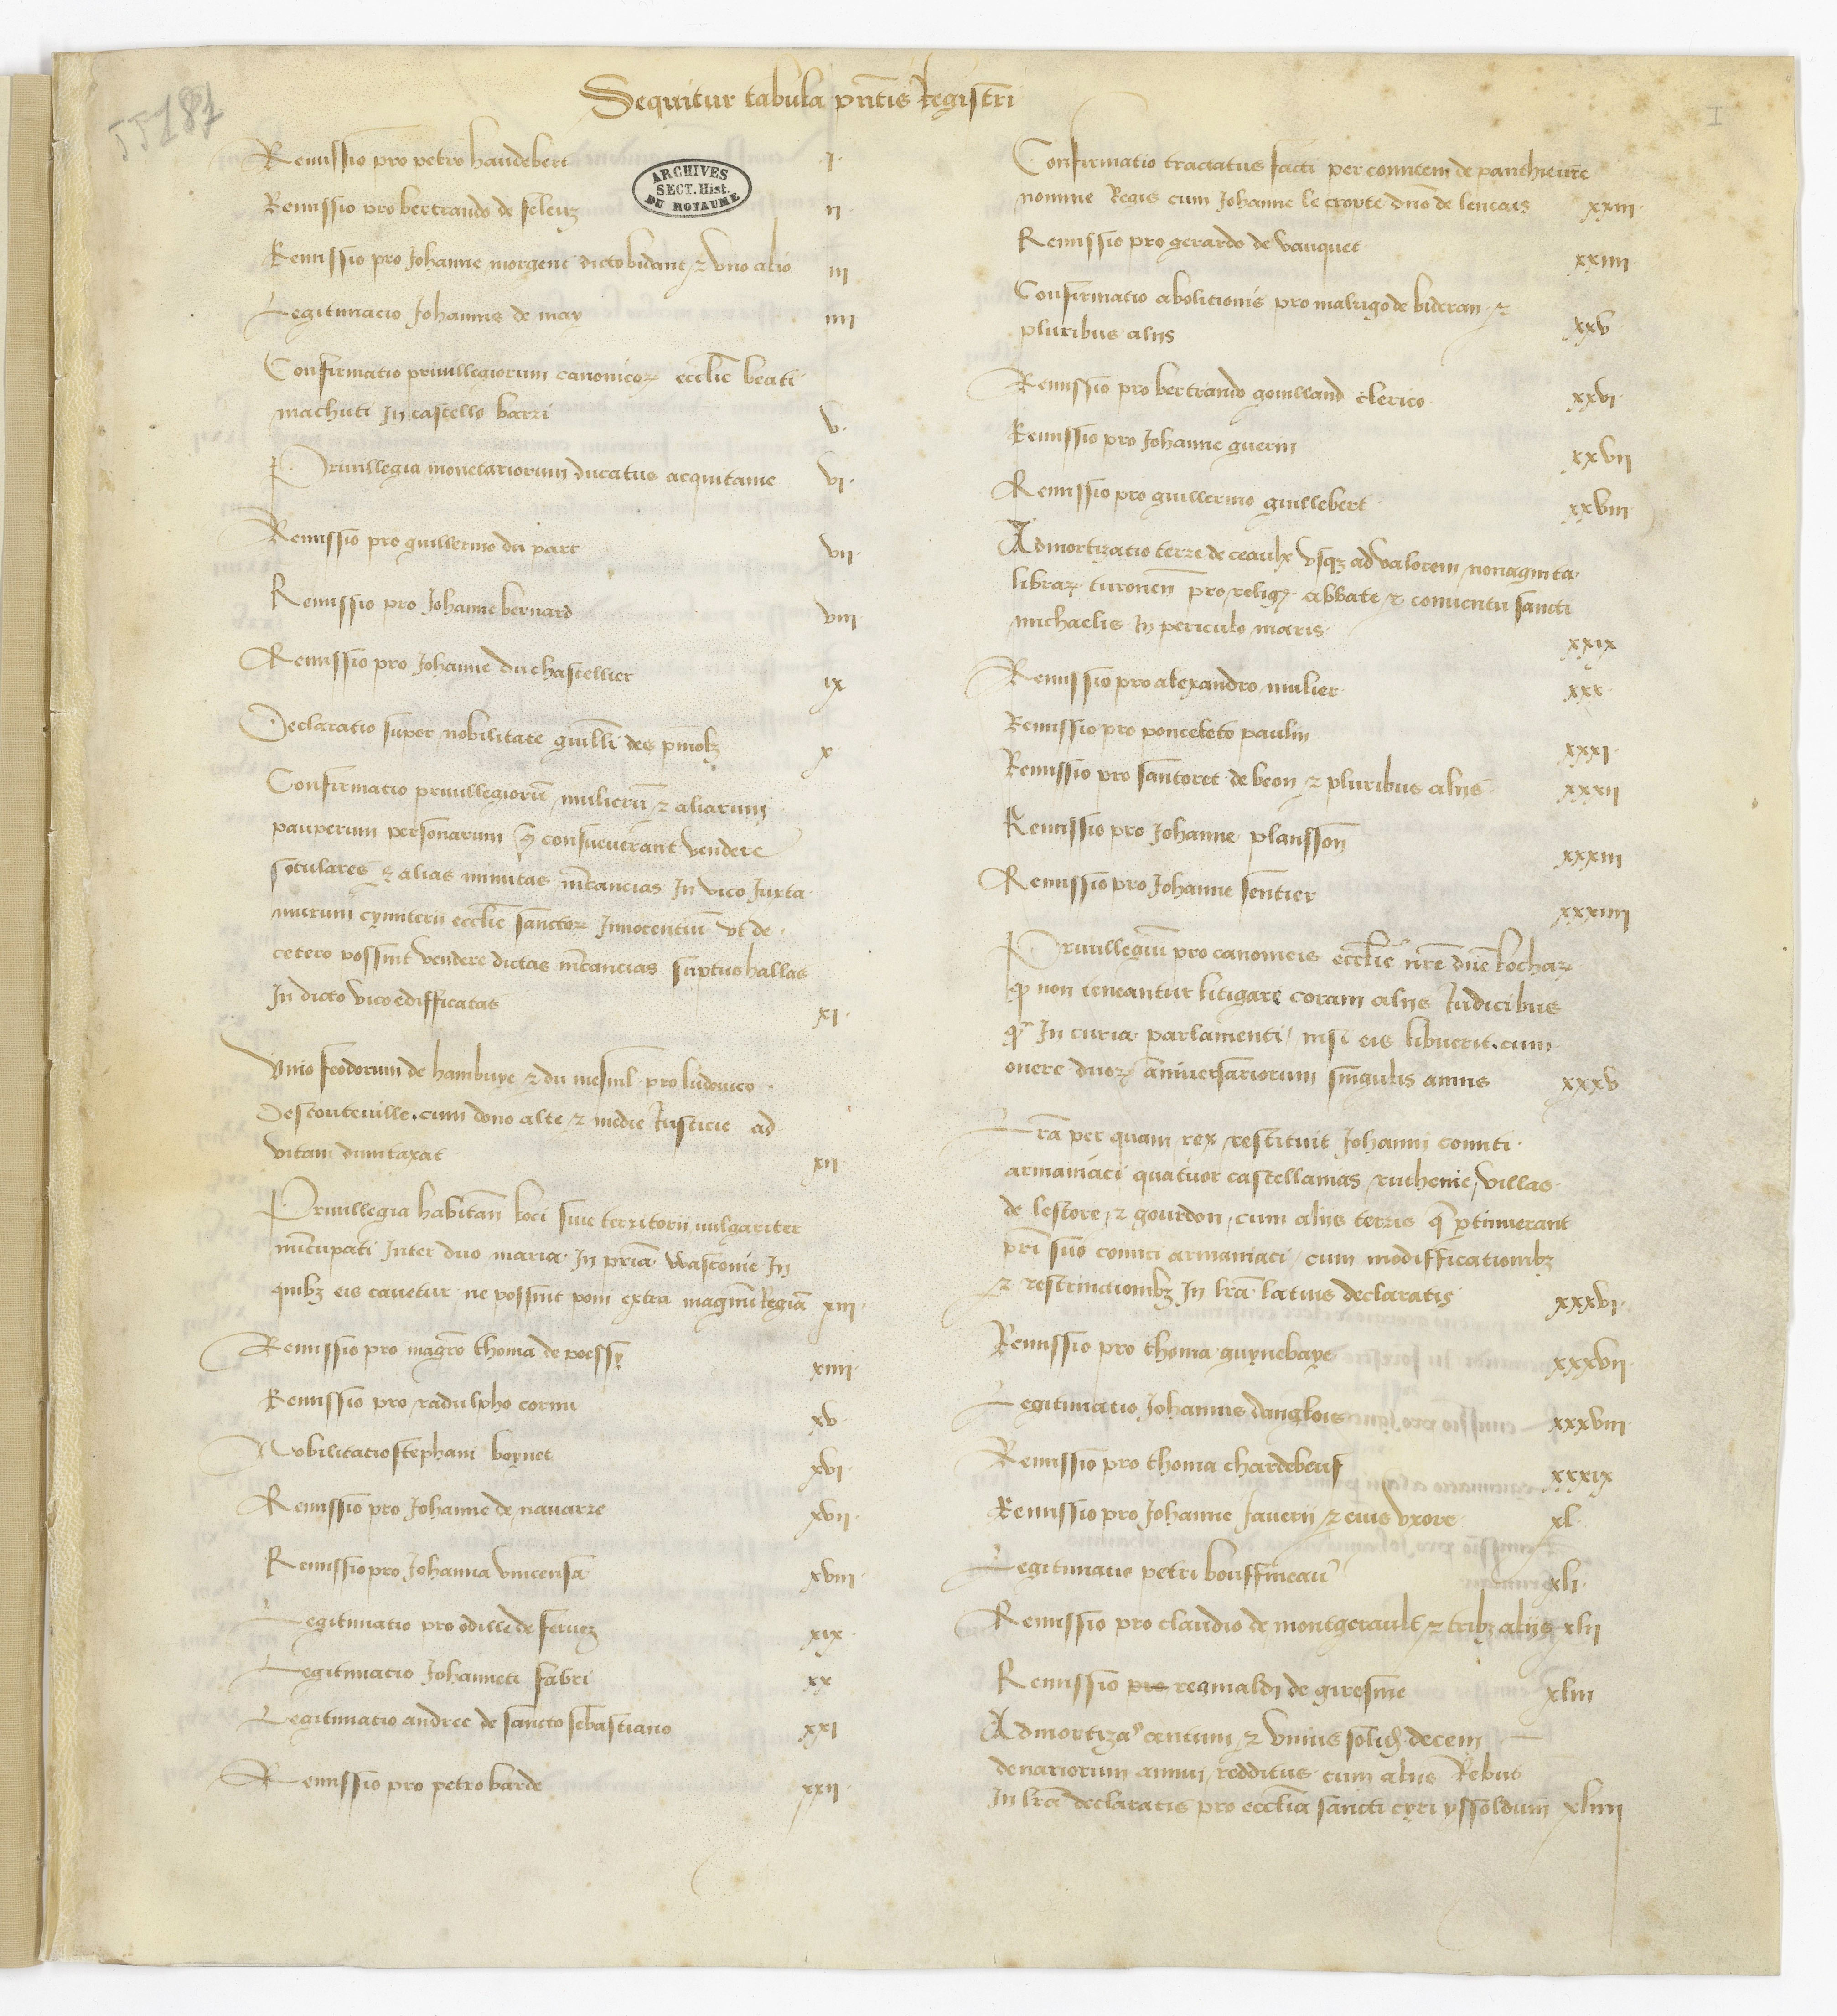 JJ181
I
Sequitur tabula pñtis Registri
Remissio pro petro haudebert I
ARCHIVES
SECT. Hist.
DU ROYAUME
Remissio pro bertrando de seleuz II
Remissio pro Johanne morgent dicto bidant et uno alio III
Legitimacio Johannis de may IIII
Confirmatio privillegiorum canonicor ecclie beati
machuti In castello barri V
Privillegia monetariorum ducatus acquitanie VI
Remissio pro guillermo du parc VII
Remissio pro Johanne bernard VIII
Remissio pro Johanne du chastellier IX
Declaratio super nobilitate guilli des X
Confirmatio privillegioru mulieru et aliarum
pauperum personarum q consueverant vendere
sotulares et alias minutas mercancias In vico Juxta
murum cymiterii ecclie sanctor Innocentiu ut de
cetero possint vendere dictas mercancias suptus hallas
In dicto vico edifficatas XI
Unio feodorum de hambuye et du mesnil pro ludovico
Destouteville cum dono alte et medie Justicie ad
vitam dumtaxat XII
Privillegia habitan loci sive territorii vulgariter
nucupati Inter duo maria In pria Wasconie In
quibz eis cavetur ne possint poni extra manu Regia XIII
Remissio pro magro thoma de poessy XIIII
Remissio pro radulpho cornu XV
Nobilitatio stephani boynet XVI
Remissio pro Johanne de navarre XVII
Remissio pro Johanna vincensa XVIII
Legitimatio pro odille de servez XIX
Legitimacio Johanneti fabri XX
Legitimatio andree de sancto sebastiano XXI
Remissio pro petro barde XXII
Confirmatio tractatus facti per comitem de panthievre
nomine Regis cum Johanne le croute dno de leneais XXIII
Remissio pro gerardo de vauquet XXIIII
Confirmatio abolitionis pro malrigo de bideran et
pluribus aliis XXV
Remissio pro bertrando gouilland clerico XXVI
Remissio pro Johanne guerin XXVII
Remissio pro guillermo guillebert XXVIII
Admortizatio terre de ceaulx usqz ad valorem nonaginta
librar turonen pro relig abbate et conventu sancti
michaelis In periculo maris XXIX
Remissio pro alexandro mulier XXX
Remissio pro ponceleto paulin XXXI
Remissio pro santoret de beon et pluribus aliis XXXII
Remissio pro Johanne plansson XXXIII
Remissio pro Johanne sentier XXXIIII
Privillegiu pro canonicis ecclie nre dne lochar
q non teneantur litigare coram aliis Judicibus
q In curia parlamenti nisi eis libuerit cum
onere duor anniversariorum singulis annis XXXV
Lra per quam rex restituit Johanni comiti
armaniaci quatuor castellanias ruthenie villas
de lestore et gourdon cum aliis terris q ptinuerant
pri suo comiti armaniaci cum modifficationibz
et restrinctionibz In lra latius declaratis XXXVI
Remissio pro thoma guynebaye XXXVII
Legitimatio Johannis danglois XXXVIII
Remissio pro thoma chardebeuf XXXIX
Remissio pro Johanne Javerii et eius uxore XL
Legitimatio petri bouffineau XLI
Remissio pro claudio de montgerault et tribz aliis XLII
Remissio pro reginaldi de giresme XLIII
Admortiza centum et unius solid decem
denariorum annui redditus cum aliis Rebus
In lra declaratis pro ecclia sancti cyri yssolduni XLIIII